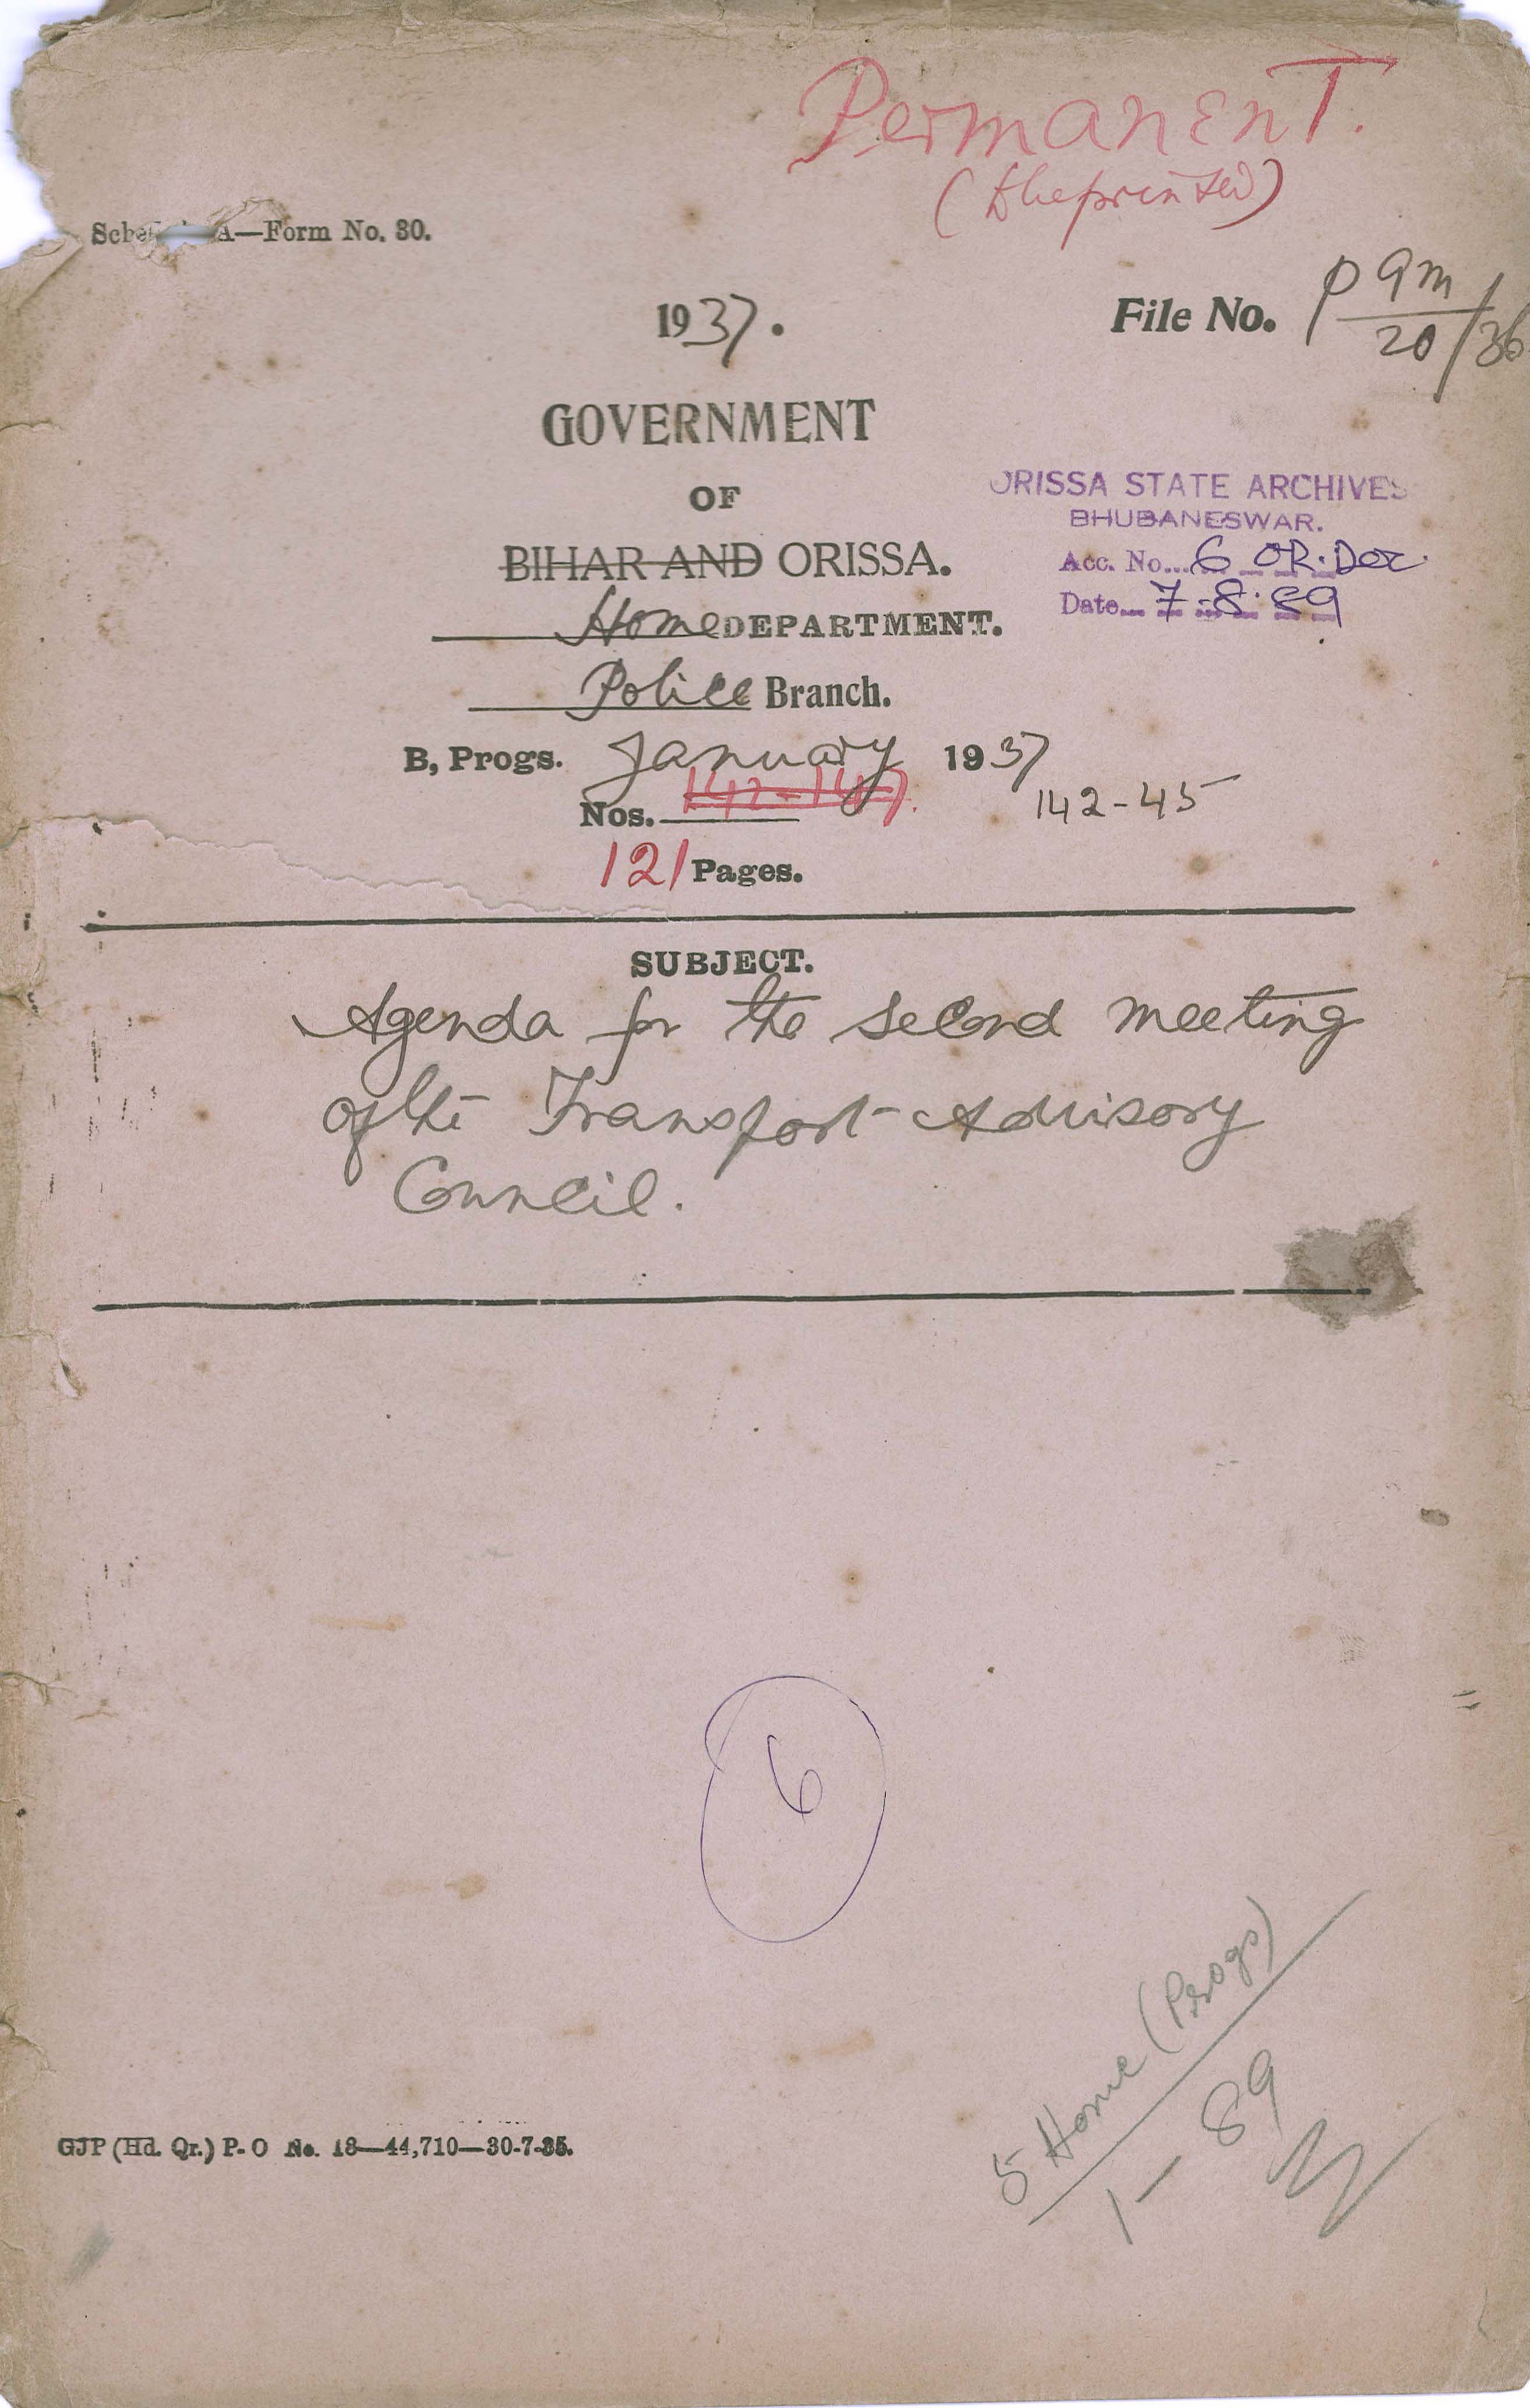 PermanenT.
Sche A—Form No. 30.
1937.
File No. P 9m
20/36
GOVERNMENT
OF
BIHAR AND ORISSA.
Home DEPARTMENT.
Police Branch.
ORISSA STATE ARCHIVES
BHUBANESWAR.
Acc. No... 6 OR.Doc.
Date... 7-8-89
B, Progs. January 1937
Nos. 142-147. 142-45
121 Pages.
SUBJECT.
Agenda for the second meeting
of the Transport Advisory
Council.
6
5 Home (Progs)
1-89
GJP (Hd. Qr.) P-O No. 18—44,710—30-7-35.